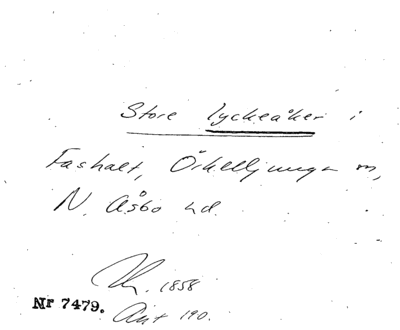 Store Lyckeåker i
Fashalt, Örkelljunga m,
N. Åsbo hd.
1858
Nr 7479.
Akt 190.